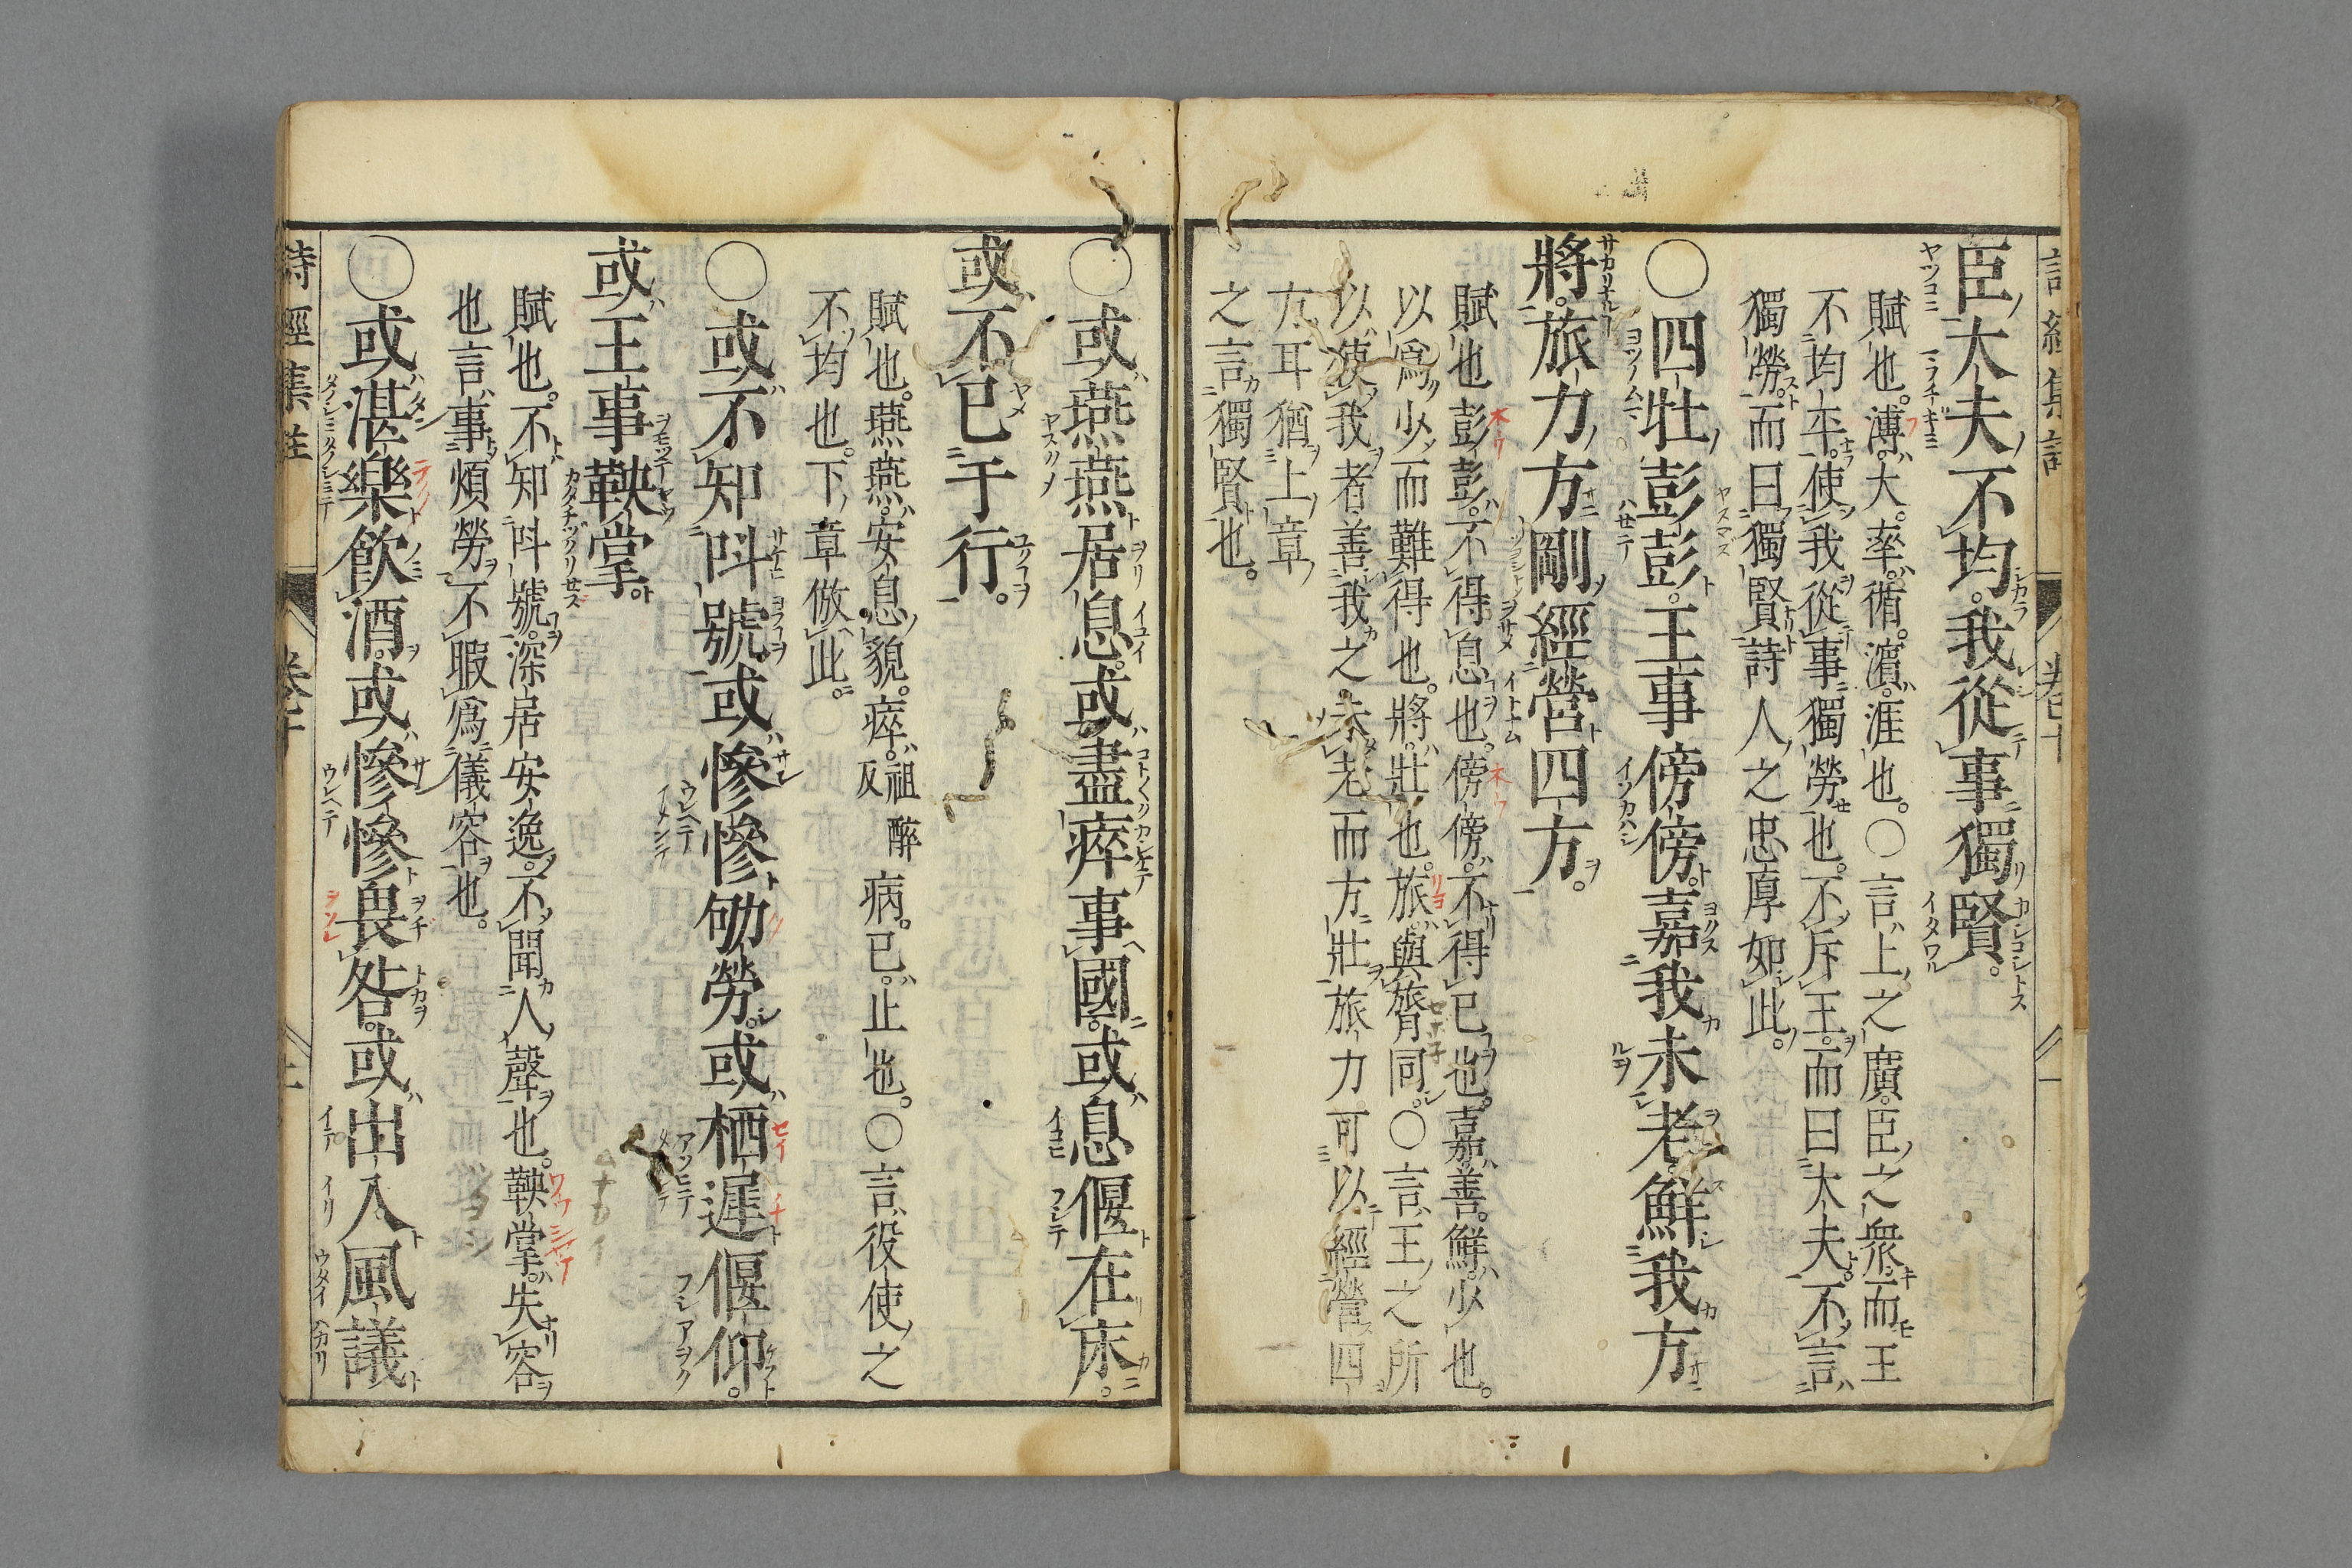 臣大夫不均。我從事獨賢。
賦也。溥。大。率。循。濵。涯也。○言上之廣。臣之衆。而王
不均平。使我從事獨勞也。不斥王。而曰大夫。不言
獨勞。而曰獨賢。詩人之忠厚如此。
○四牡彭彭。王事傍傍。嘉我未老。鮮我方
將。旅力方剛。經營四方。
賦也彭彭。不得息也。傍傍。不得已也。嘉。善。鮮。少也。
以爲少而難得也。將。壯也。旅。與膂同。○言王之所
以使我者。善我之未老而方壯。旅力可以經營四
方耳猶上章
之言獨賢也。
○或燕燕居息。或盡瘁事國。或息偃在床。
或不已于行。
賦也。燕燕。安息貌。瘁。祖醉反病。已。止也。○言役使之
不均也。下章倣此。
○或不知呌號。或慘慘劬勞。或栖遲偃仰。
或王事鞅掌。
賦也。不知呌號。深居安逸。不聞人聲也。鞅掌。失容
也言事煩勞。不暇爲儀容也。
○或湛樂飲酒。或慘慘畏咎。或出入風議
詩經集註 卷十